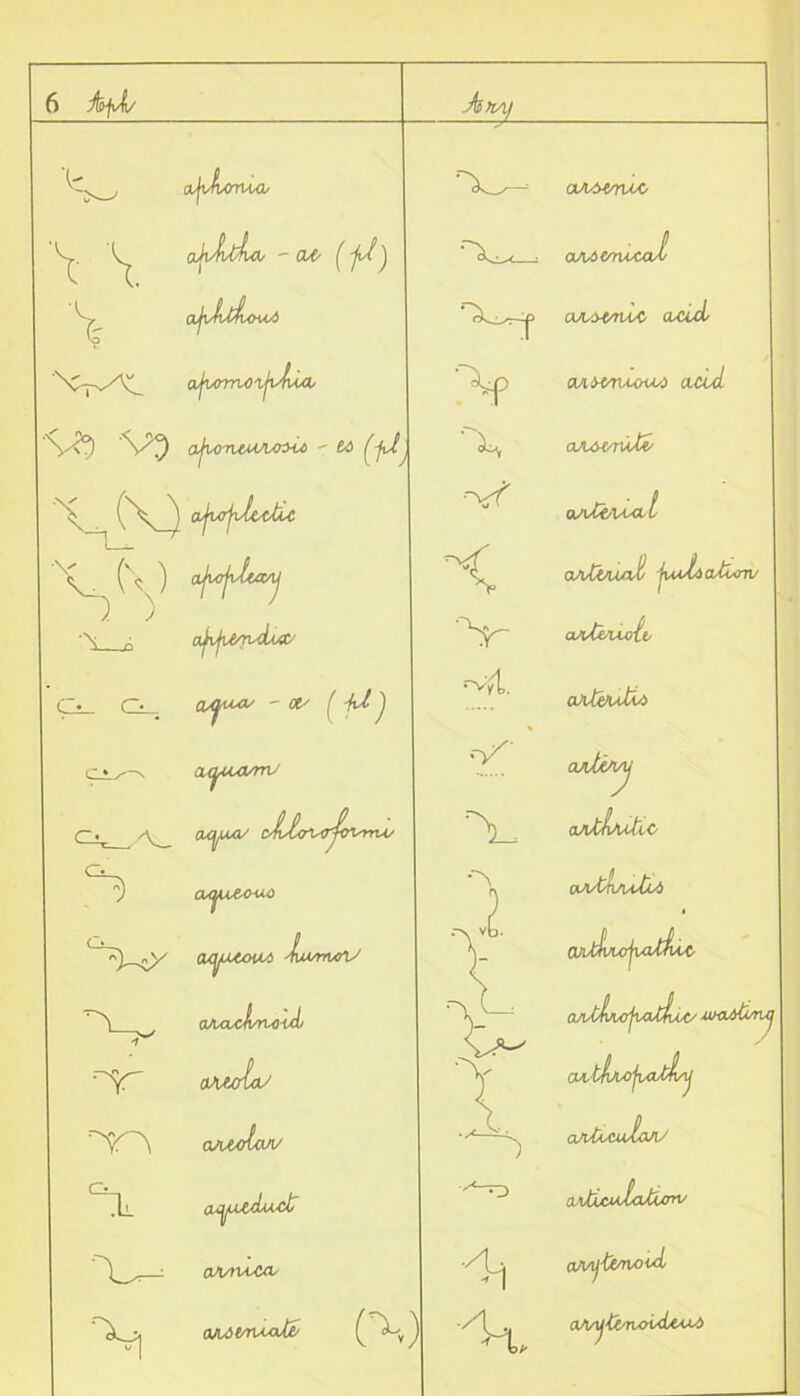 6 Aph
aphonia
aphtha - ae (pl)
aphthous
apomorphia
aponeurosis - es (pl)
apoplectic
apoplexy
appendix
aqua - æ (pl)
aquam
aqua chloroformi
aqueous
aqueous humor
arachnoid
areola
areolar
aqueduct
arnica
arseniate
Ary
arsenic
arsenical
arsenic acid
arsenious acid
arsenite
arterial
arterial pulsation
arteriole
arteritis
artery
arthritic
arthritis
arthropathic
arthropathic wasting
arthropathy
articular
articulation
arytenoid
arytenoideus